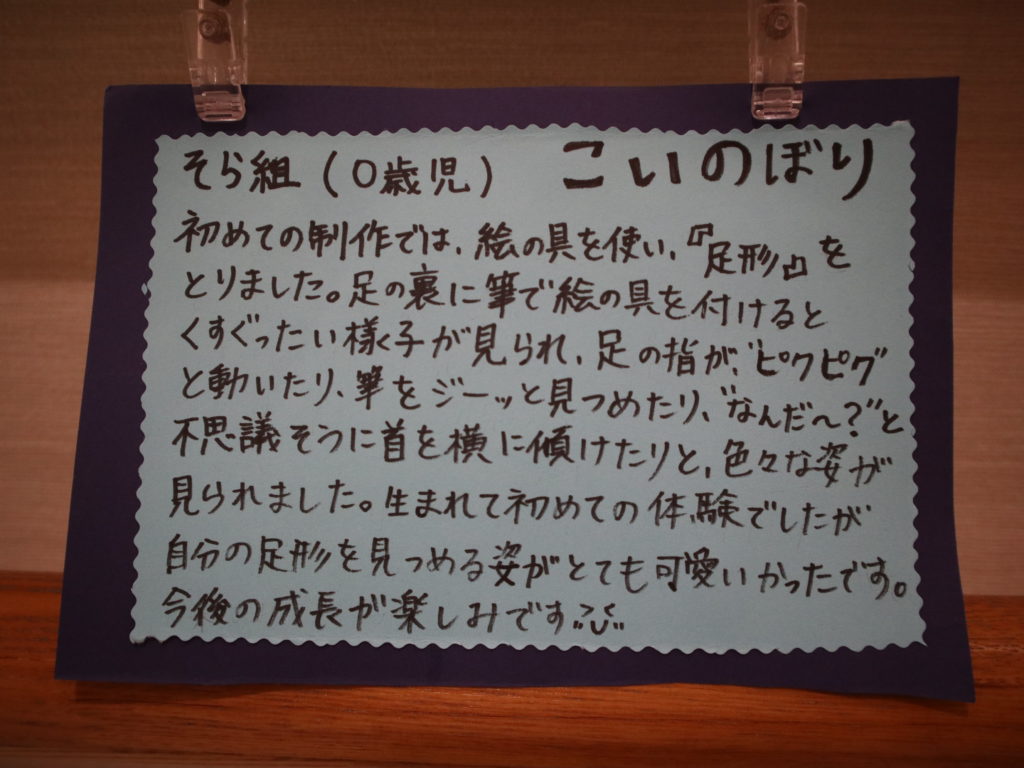 そら組（0歳児） こいのぼり
初めての制作では、絵の具を使い、『足形』を
とりました。足の裏に筆で絵の具を付けると
くすぐったい様子が見られ、足の指が、"ピクピク"
と動いたり、筆をジーッと見つめたり、"なんだ〜？"と
不思議そうに首を横に傾けたりと、色々な姿が
見られました。生まれて初めての体験でしたが
自分の足形を見つめる姿がとても可愛いかったです。
今後の成長が楽しみです